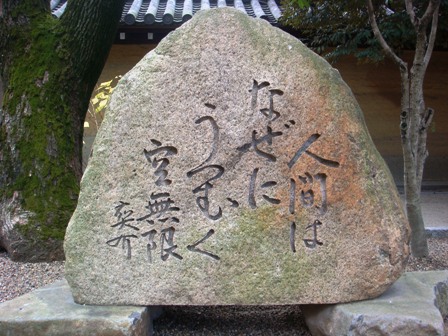 人間は
なぜに
うつむく
空無限
奕介